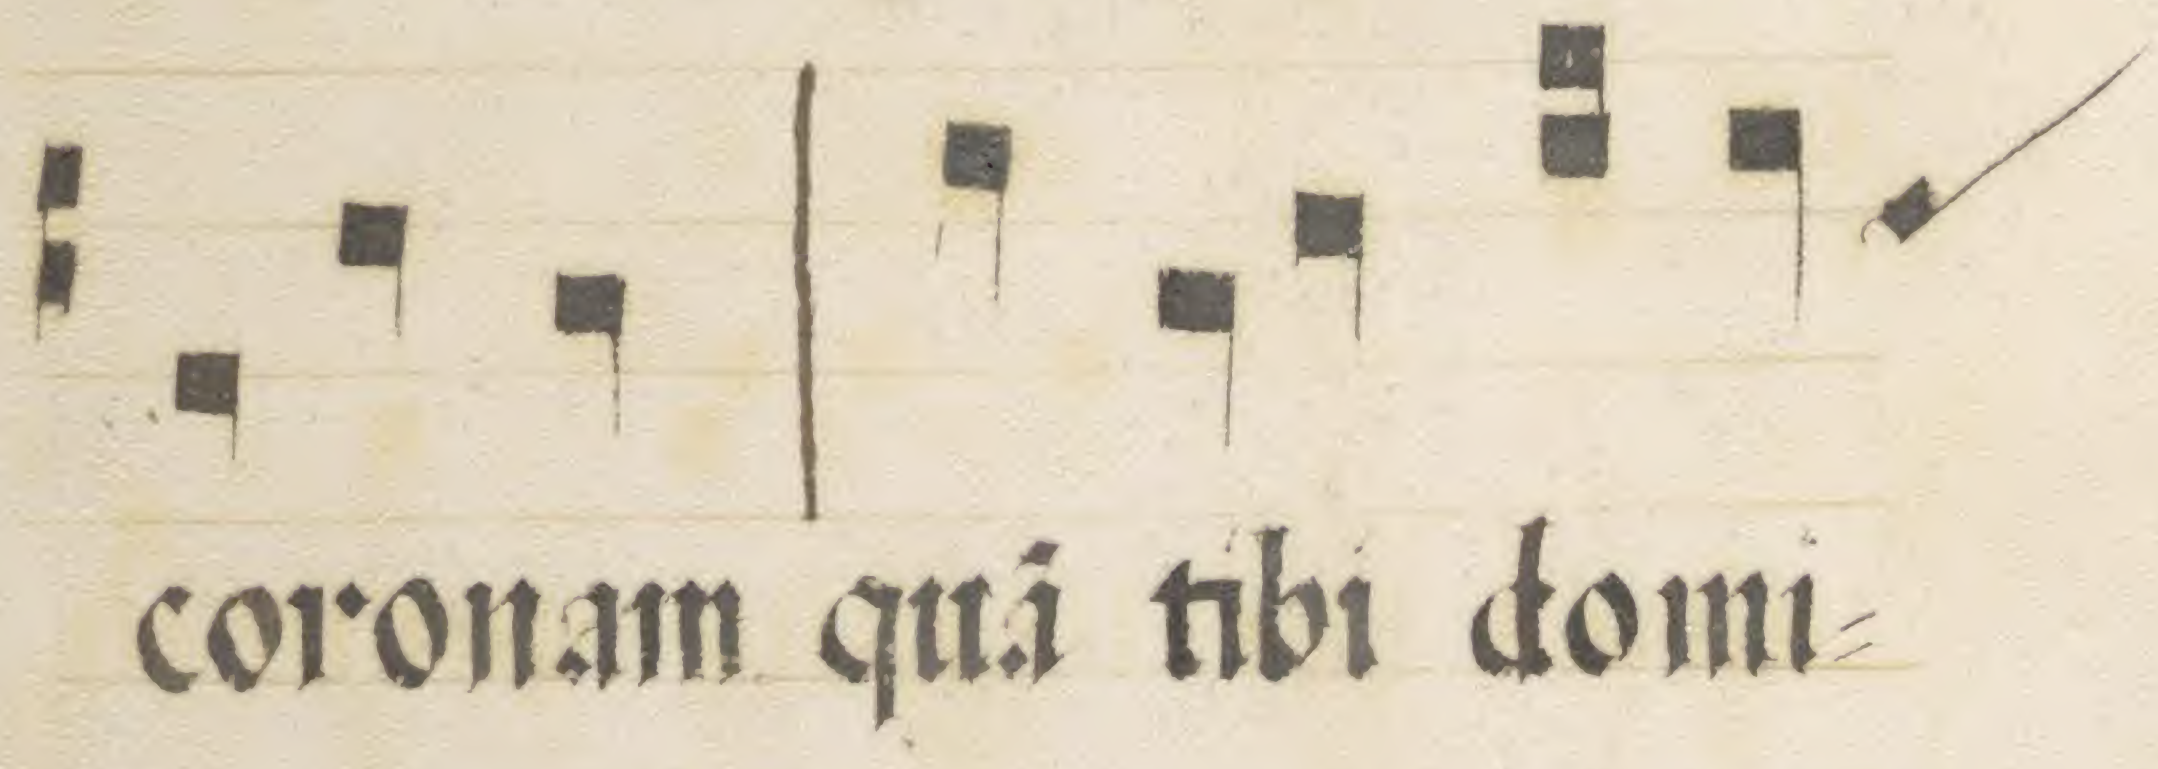 coronam quā tibi domi=